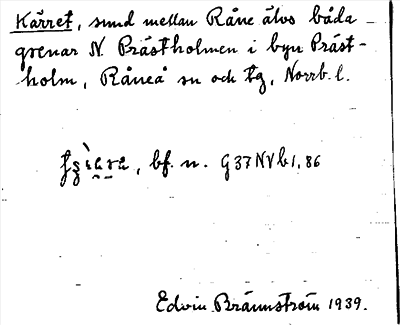 Kärret, sund mellan Råne älvs båda
grenar N. Prästholmen i byn Präst-
holm, Råneå sn och tg, Norrb. l.
bf. n. G37NVb1,86
Edvin Brännström 1939.